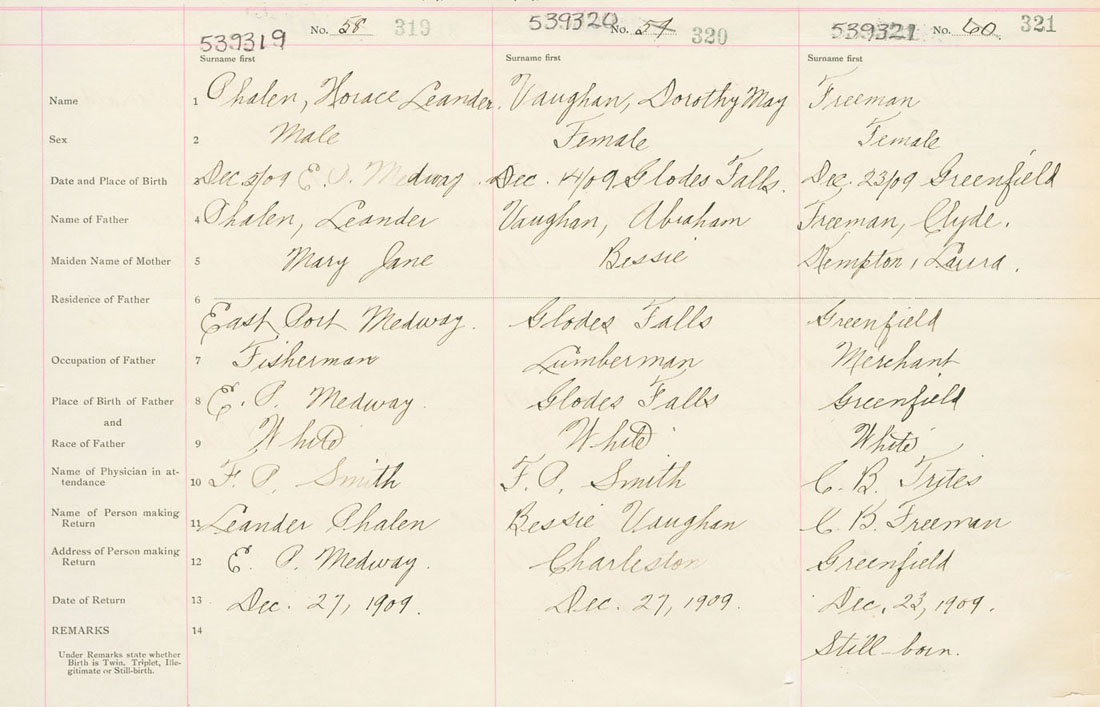 539319 No. 58 319 539320 No. 59 320 539321 No. 60 321
Surname first Surname first Surname first
Name 1 Phalen, Horace Leander. Vaughan, Dorothy May Freeman
Sex 2 Male Female Female
Date and Place of Birth 3 Dec 5/09 E. P. Medway. Dec. 14/09 Glodes Falls. Dec. 23/09 Greenfield
Name of Father 4 Phalen, Leander Vaughan, Abraham Freeman, Clyde.
Maiden Name of Mother 5 Mary Jane Bessie Kempton, Laura.
Residence of Father 6
East Port Medway. Glodes Falls Greenfield
Occupation of Father 7 Fisherman Lumberman Merchant
Place of Birth of Father 8 E. P. Medway. Glodes Falls Greenfield
and
Race of Father 9 White White White
Name of Physician in at-
tendance 10 F. P. Smith F. P. Smith C. B. Trites
Name of Person making
Return 11 Leander Phalen Bessie Vaughan C. B. Freeman
Address of Person making
Return 12 E. P. Medway. Charleston Greenfield
Date of Return 13 Dec. 27, 1909. Dec. 27, 1909. Dec. 23, 1909.
REMARKS 14
Still-born.
Under Remarks state whether
Birth is Twin, Triplet, Ille-
gitimate or Still-birth.